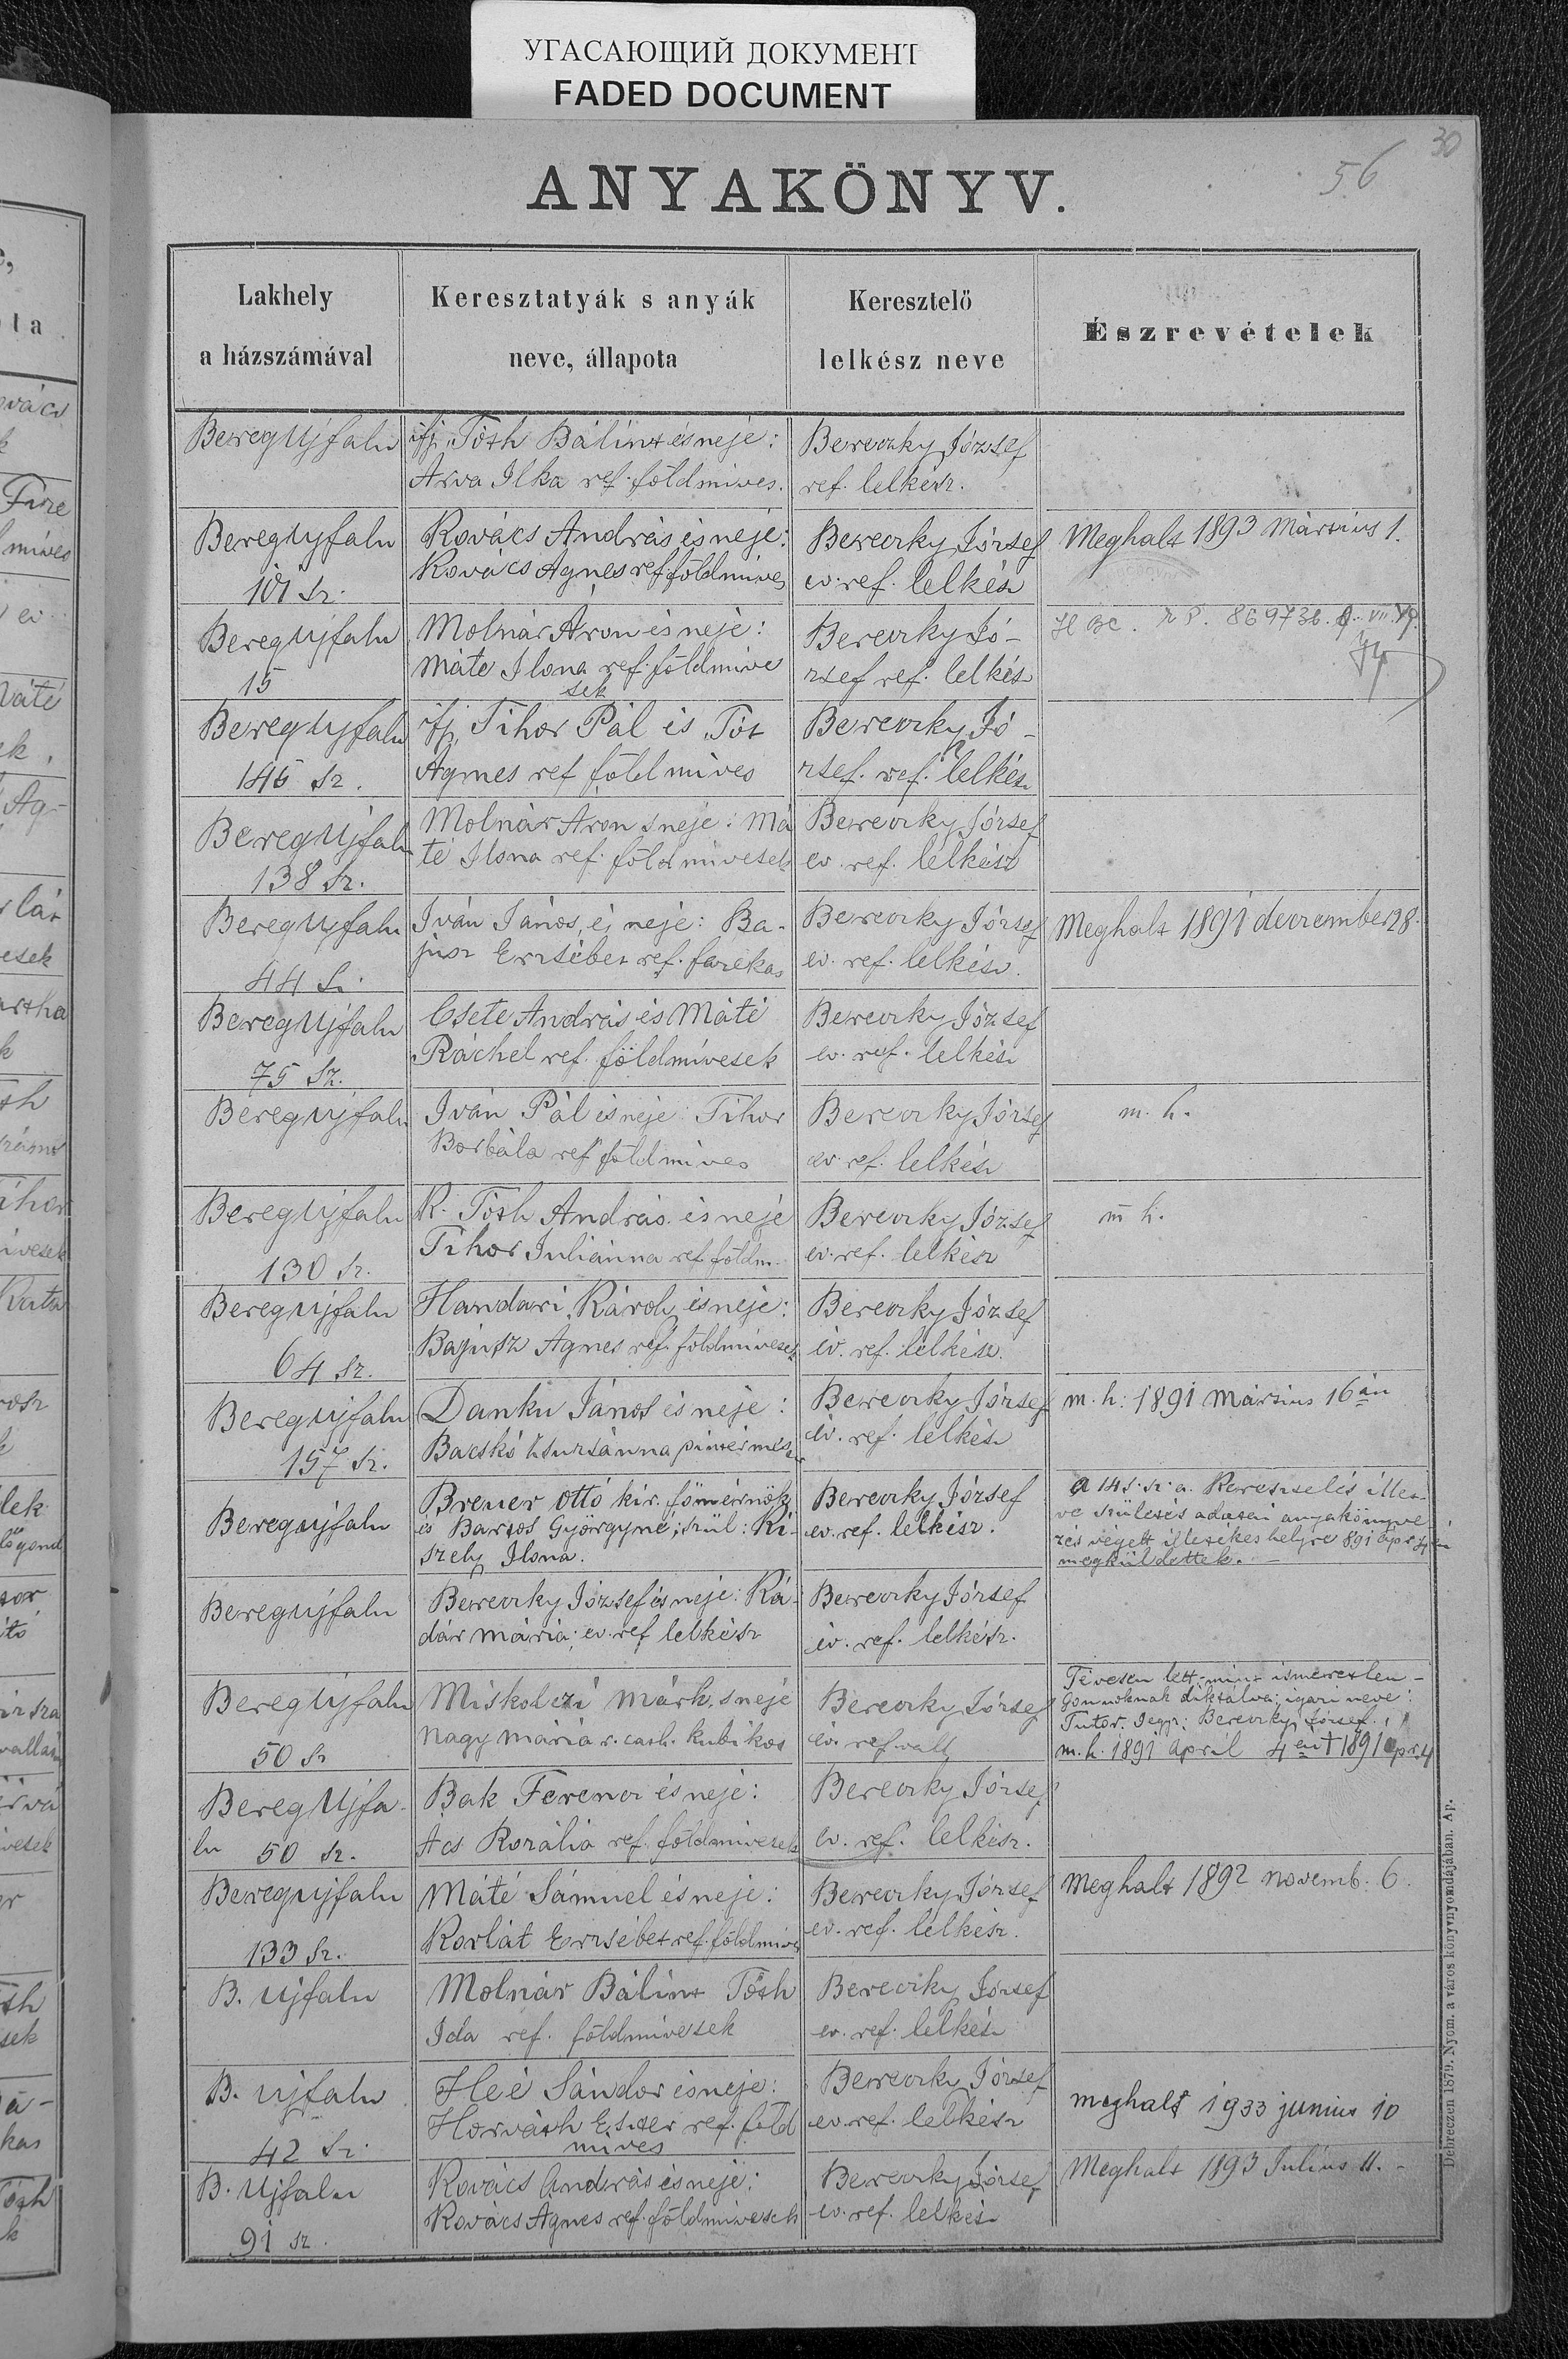 УГАСАЮЩИЙ ДОКУМЕНТ
FADED DOCUMENT
30
56
ANYAKÖNYV.
Lakhely
a házszámával
Keresztatyák s anyák
neve, állapota
Keresztelő
lelkész neve
Észrevételek
BeregUjfalu
ifj. Tóth Bálint és neje:
Árva Ilka ref. földmives.
Bereczky József
ref. lelkész.
BeregUjfalu
101 sz.
Kovács András és neje:
Kovács Ágnes ref földmives
Bereczky József
ev. ref. lelkész
Meghalt 1893 Március 1.
BeregUjfalu
15
Molnár Áron és neje:
Máté Ilona ref. földmive
sek
Bereczky Jó-
zsef ref. lelkész
869736.
BeregUjfalu
146 sz.
ifj. Tihor Pál és Tót
Ágnes ref földmives
Bereczky Jó-
zsef. ref. lelkész
BeregUjfalu
138 sz.
Molnár Áron s neje: Má
té Ilona ref. földmivesek
Bereczky József
ev. ref. lelkész
BeregUjfalu
44 sz.
Iván János, és neje: Ba-
jusz Erzsébet ref. farekas
Bereczky József
ev. ref. lelkész.
Meghalt 1891 deczember 28.
BeregUjfalu
75 sz.
Csete András és Máté
Ráchel ref. földmivesek
Bereczky József
ev. ref. lelkész
BeregUjfalu
Iván Pál és neje: Tihor
Borbála ref földmives
Bereczky József
ev. ref. lelkész
m. h.
BeregUjfalu
130 sz.
K. Tóth András és neje
Tihor Juliánna ref. földm.
Bereczky József
ev. ref. lelkész
m h.
BeregUjfalu
64 sz.
Handari Károly és neje:
Bajusz Ágnes ref. földmivesek
Bereczky József
ev. ref. lelkész.
BeregUjfalu
157 sz.
Danku János és neje:
Bacskó Zsuzsánna pinczémester
Bereczky József
ev. ref. lelkész
m. h: 1891 Március 16án
Beregujfalu
Breuer Ottó kir. főmérnök
és Bartos Györgyné; szül: Ki-
szely Ilona.
Bereczky József
ev. ref. lelkész.
a 14 s. sz. a. Keresztelés illet-
ve születés adatai anyakönyve-
zés végett illetékes helyre 891 ápr
megküldettek.
BeregUjfalu
Bereczky József és neje: Ká-
dár mária; ev. ref lelkész
Bereczky József
ev. ref. lelkész.
BeregUjfalu
50 sz
Miskolczi Márk, s neje
Nagy mária r. cath. kubikos
Bereczky József
ev. ref vall
Tévesen lett mint ismeretlen-
Gonnoknak diktálva; igazi neve:
Tutor. Jegyz: Bereczky József.
m. h. 1891 April 4 én † 1891 apr. 4
BeregUjfa-
lu 50 sz.
Bak Ferencz és neje:
Ács Rozália ref. földmivesek
Bereczky József
ev. ref. lelkész.
Beregujfalu
133 sz.
Máté Sámuel és neje:
Korlát Erzsébet ref. földmives
Bereczky József
ev. ref. lelkész.
Meghalt 1892 novemb. 6.
B. Ujfalu
Molnár Bálint Tóth
Ida ref. földmivesek
Bereczky József
ev. ref. lelkész
B. Ujfalu
42 sz.
Heé Sándor és neje:
Horváth Eszter ref. föld
mives
Bereczky József
ev. ref. lelkész
meghalt 1933 junius 10
B. Ujfalu
91 sz.
Kovács András és neje:
Kovács Ágnes ref. földmivesek
Bereczky József
ev. ref. lelkész
Meghalt 1893 Július 11.-
Debreczen 1879. Nyom. a város könyvnyomdájában. Ap.